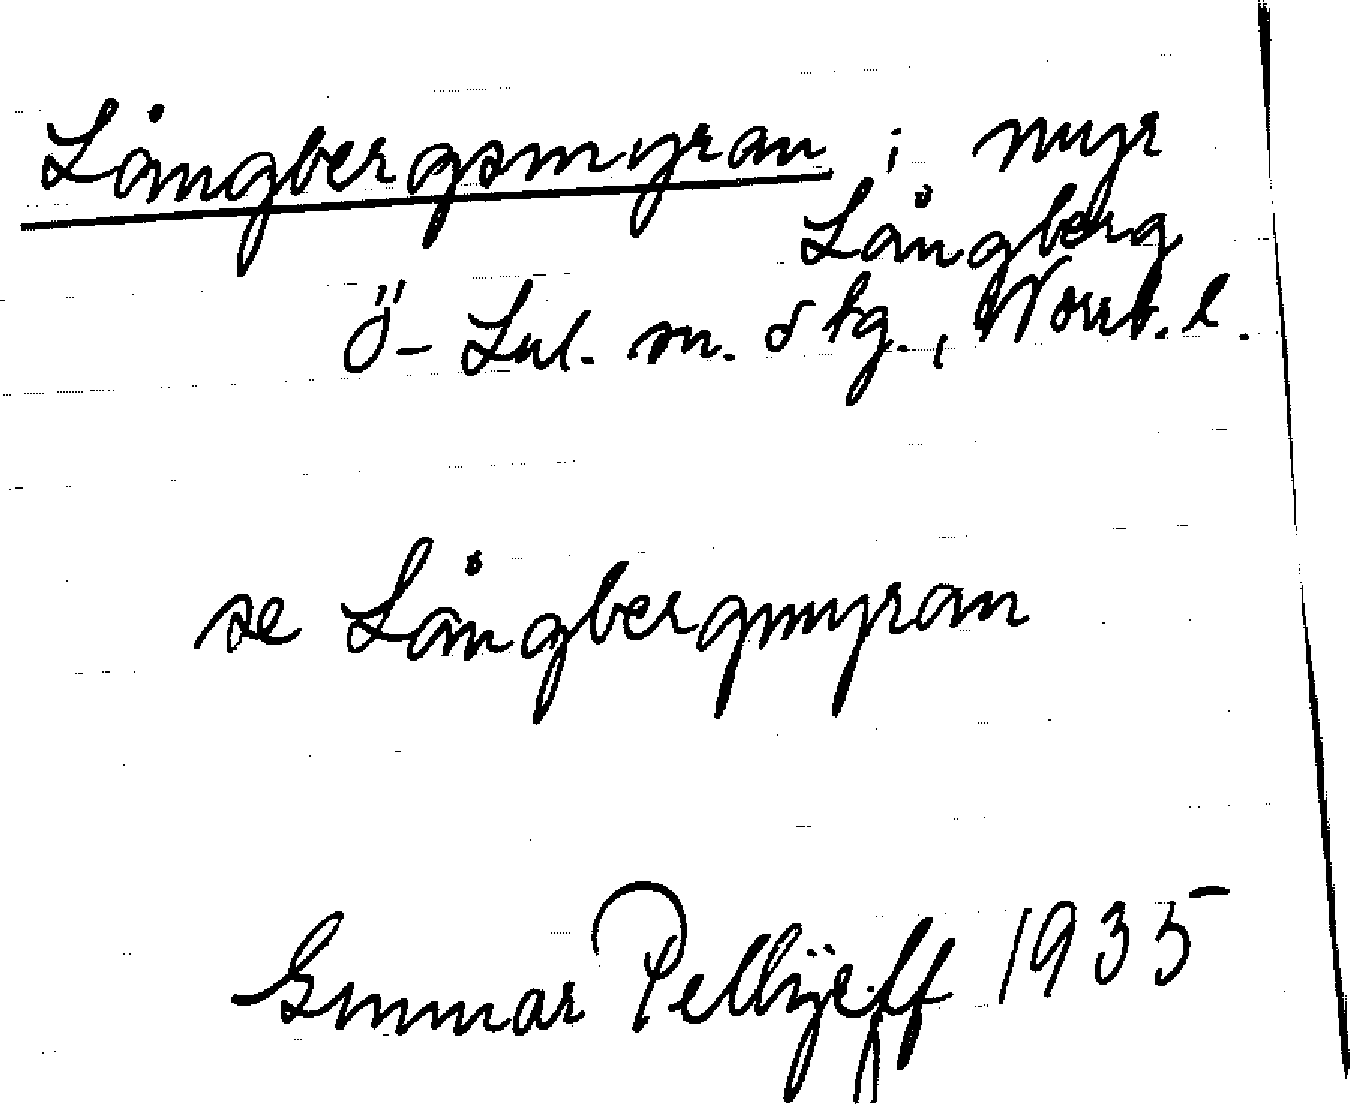 Långbergsmyran ; myr
Långberg
Ö-Lul. m. skg., Norrb. l.
se Långbergmyran
Gunnar Pellijeff 1935